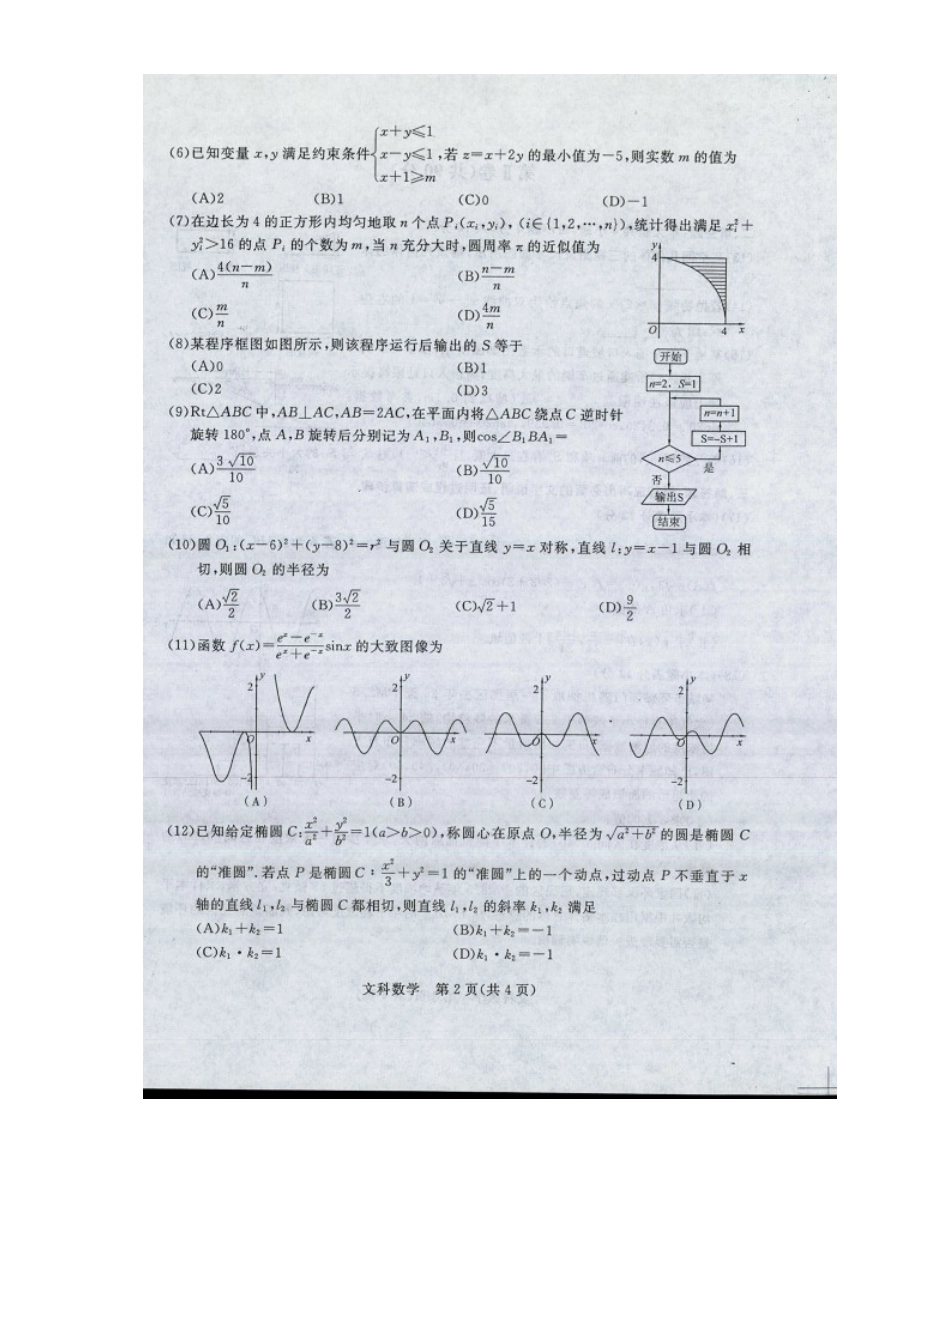 (6)已知变量 x,y 满足约束条件{x+y≤1 x-y≤1 x+1≥m,若 z=x+2y 的最小值为-5,则实数 m 的值为
(A)2 (B)1 (C)0 (D)-1
(7)在边长为 4 的正方形内均匀地取 n 个点 Pᵢ(xᵢ,yᵢ),(i∈{1,2,…,n}),统计得出满足 xᵢ²+
yᵢ²>16 的点 Pᵢ 的个数为 m,当 n 充分大时,圆周率 π 的近似值为
(A)4(n-m)/n (B)(n-m)/n
(C)m/n (D)4m/n
y
4
O 4 x
(8)某程序框图如图所示,则该程序运行后输出的 S 等于
(A)0 (B)1
(C)2 (D)3
开始
n=2, S=1
n=n+1
S=-S+1
n≤5
是
否
输出S
结束
(9)Rt△ABC 中,AB⊥AC,AB=2AC,在平面内将△ABC 绕点 C 逆时针
旋转 180°,点 A,B 旋转后分别记为 A₁,B₁,则cos∠B₁BA₁=
(A)3√10/10 (B)√10/10
(C)√5/10 (D)√5/15
(10)圆 O₁:(x-6)²+(y-8)²=r² 与圆 O₂ 关于直线 y=x 对称,直线 l:y=x-1 与圆 O₂ 相
切,则圆 O₂ 的半径为
(A)√2/2 (B)3√2/2 (C)√2+1 (D)9/2
(11)函数 f(x)=(eˣ-e⁻ˣ)/(eˣ+e⁻ˣ)sinx 的大致图像为
y y y y
2 2 2 2
O x O x O x O x
-2 -2 -2 -2
(A) (B) (C) (D)
(12)已知给定椭圆 C:x²/a²+y²/b²=1(a>b>0),称圆心在原点 O,半径为√(a²+b²)的圆是椭圆 C
的“准圆”.若点 P 是椭圆 C:x²/3+y²=1 的“准圆”上的一个动点,过动点 P 不垂直于 x
轴的直线 l₁,l₂ 与椭圆 C 都相切,则直线 l₁,l₂ 的斜率 k₁,k₂ 满足
(A)k₁+k₂=1 (B)k₁+k₂=-1
(C)k₁·k₂=1 (D)k₁·k₂=-1
文科数学 第 2 页(共 4 页)